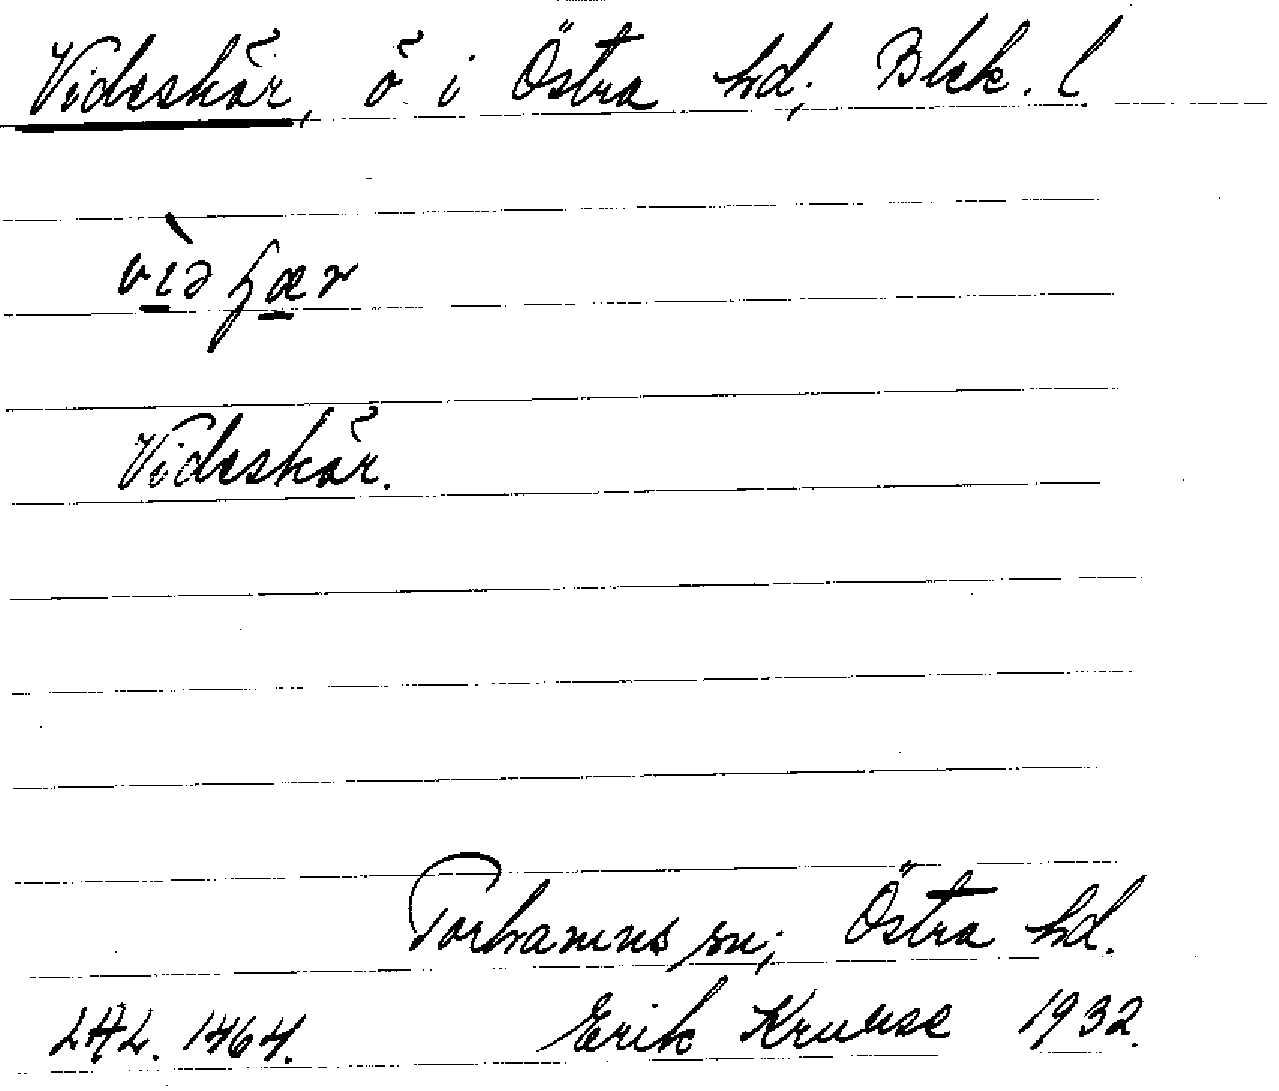 Videskär, ö i Östra hd; Blek. l.
Videskär.
Torhamns sn; Östra hd.
LAL. 1464. Erik Kruuse 1932.